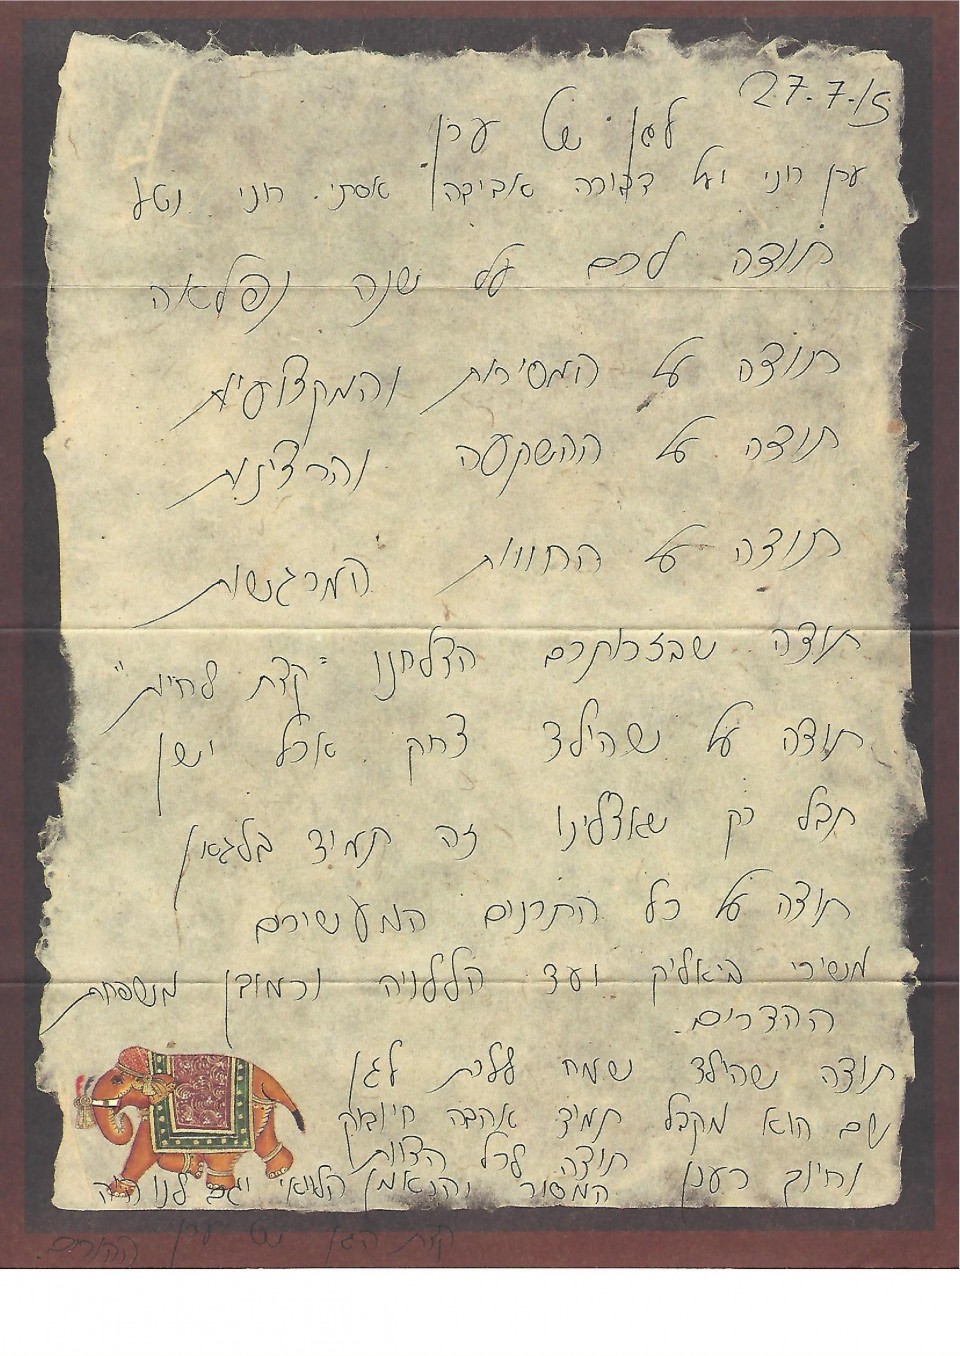 27.7.15
לגן של ערן
ערן רוני ויעל דבורה אביבה אסתי רוני נטע
תודה לכם על שנה נפלאה
תודה על המסירות והמקצועיות
תודה על ההשקעה והרצינות
תודה על החוויות המרגשות
תודה שבזכותכם הצלחנו "קצת לחיות"
תודה על שהילד צחק אכל וישן
חבל רק שאצלינו זה תמיד בלגאן
תודה על כל התכנים המעשירים
משירי ביאליק ועד הללויה וכמובן משפחת
ההדרים.
תודה שהילד שמח ללכת לגן
שם הוא מקבל תמיד אהבה חיבוק
וחינוך רענן
תודה לכל הצוות
המסור והנאמן הלוואי וגם לנו היה
קצת הגן של ערן ההורים